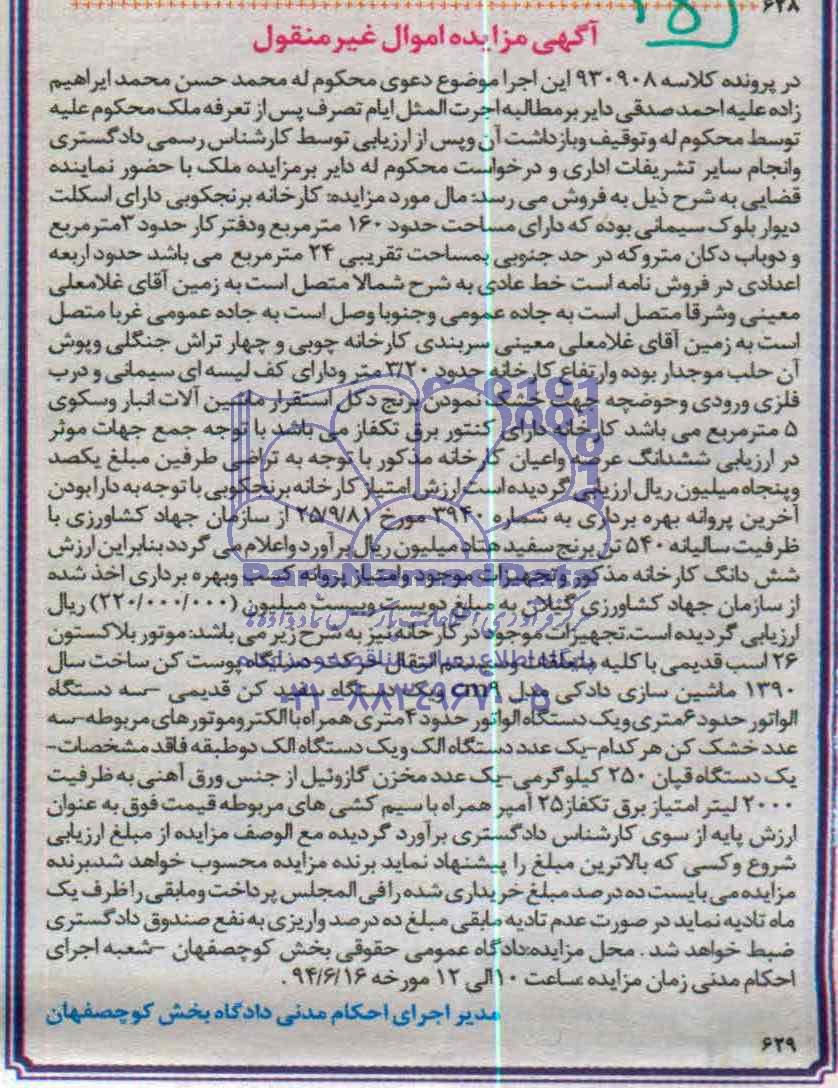 ۶۲۸
آگهی مزایده اموال غیر منقول
در پرونده کلاسه ۹۳۰۹۰۸ این اجرا موضوع دعوی محکوم له محمد حسن محمد ابراهیم
زاده علیه احمد صدقی دایر بر مطالبه اجرت المثل ایام تصرف پس از تعرفه ملک محکوم علیه
توسط محکوم له وتوقیف وبازداشت آن وپس از ارزیابی توسط کارشناس رسمی دادگستری
وانجام سایر تشریفات اداری و درخواست محکوم له دایر برمزایده ملک با حضور نماینده
قضایی به شرح ذیل به فروش می رسد: مال مورد مزایده: کارخانه برنجکوبی دارای اسکلت
دیوار بلوک سیمانی بوده که دارای مساحت حدود ۱۶۰ مترمربع ودفتر کار حدود ۳مترمربع
و دوباب دکان متروکه در حد جنوبی بمساحت تقریبی ۲۴ مترمربع می باشد حدود اربعه
اعدادی در فروش نامه است خط عادی به شرح شمالا متصل است به زمین آقای غلامعلی
معینی وشرقا متصل است به جاده عمومی وجنوبا وصل است به جاده عمومی غربا متصل
است به زمین آقای غلامعلی معینی سربندی کارخانه چوبی و چهار تراش جنگلی وپوش
آن حلب موجدار بوده وارتفاع کارخانه حدود ۳/۲۰ متر ودارای کف لیسه ای سیمانی و درب
فلزی ورودی وحوضچه جهت خشک نمودن برنج دکل استقرار ماشین آلات انبار وسکوی
۵ مترمربع می باشد کارخانه دارای کنتور برق تکفاز می باشد با توجه جمع جهات موثر
در ارزیابی ششدانگ عرصه واعیان کارخانه مذکور با توجه به تراضی طرفین مبلغ یکصد
وپنجاه میلیون ریال ارزیابی گردیده است ارزش امتیاز کارخانه برنجکوبی با توجه به دارا بودن
آخرین پروانه بهره برداری به شماره ۳۹۴۰ مورخ ۲۵/۹/۸۱ از سازمان جهاد کشاورزی با
ظرفیت سالیانه ۵۴۰ تن برنج سفید هفتاد میلیون ریال برآورد واعلام می گردد بنابراین ارزش
شش دانگ کارخانه مذکور وتجهیزات موجود وامتیاز پروانه کسب وبهره برداری اخذ شده
از سازمان جهاد کشاورزی گیلان به مبلغ دویست وبیست میلیون (۲۲۰/۰۰۰/۰۰۰) ریال
ارزیابی گردیده است.تجهیزات موجود در کارخانه نیز به شرح زیر می باشد: موتور بلاکستون
۲۶ اسب قدیمی با کلیه متعلقات ولازم انتقال حرکت دستگاه پوست کن ساخت سال
۱۳۹۰ ماشین سازی دادکی مدل cm۹ ویک دستگاه سفید کن قدیمی -سه دستگاه
الواتور حدود ۶متری ویک دستگاه الواتور حدود ۴متری همراه با الکتروموتور های مربوطه-سه
عدد خشک کن هر کدام-یک عدد دستگاه الک ویک دستگاه الک دوطبقه فاقد مشخصات-
یک دستگاه قپان ۲۵۰ کیلوگرمی-یک عدد مخزن گازوئیل از جنس ورق آهنی به ظرفیت
۲۰۰۰ لیتر امتیاز برق تکفاز۲۵ آمپر همراه با سیم کشی های مربوطه قیمت فوق به عنوان
ارزش پایه از سوی کارشناس دادگستری برآورد گردیده مع الوصف مزایده از مبلغ ارزیابی
شروع وکسی که بالاترین مبلغ را پیشنهاد نماید برنده مزایده محسوب خواهد شد.برنده
مزایده می بایست ده درصد مبلغ خریداری شده رافی المجلس پرداخت ومابقی راظرف یک
ماه تادیه نماید در صورت عدم تادیه مابقی مبلغ ده درصد واریزی به نفع صندوق دادگستری
ضبط خواهد شد . محل مزایده:دادگاه عمومی حقوقی بخش کوچصفهان -شعبه اجرای
احکام مدنی زمان مزایده :ساعت ۱۰الی ۱۲ مورخه ۹۴/۶/۱۶.
مدیر اجرای احکام مدنی دادگاه بخش کوچصفهان
۶۲۹
ParsNamadData
پایگاه اطلاع رسانی مناقصه و مزایده
۰۲۱-۸۸۳۴۹۶۷۰-۵